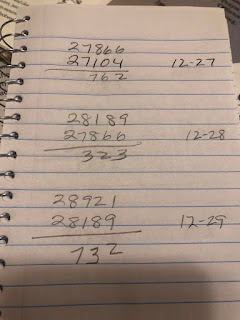 27866
27104 12-27
762
28189
27866 12-28
323
28921
28189 12-29
732